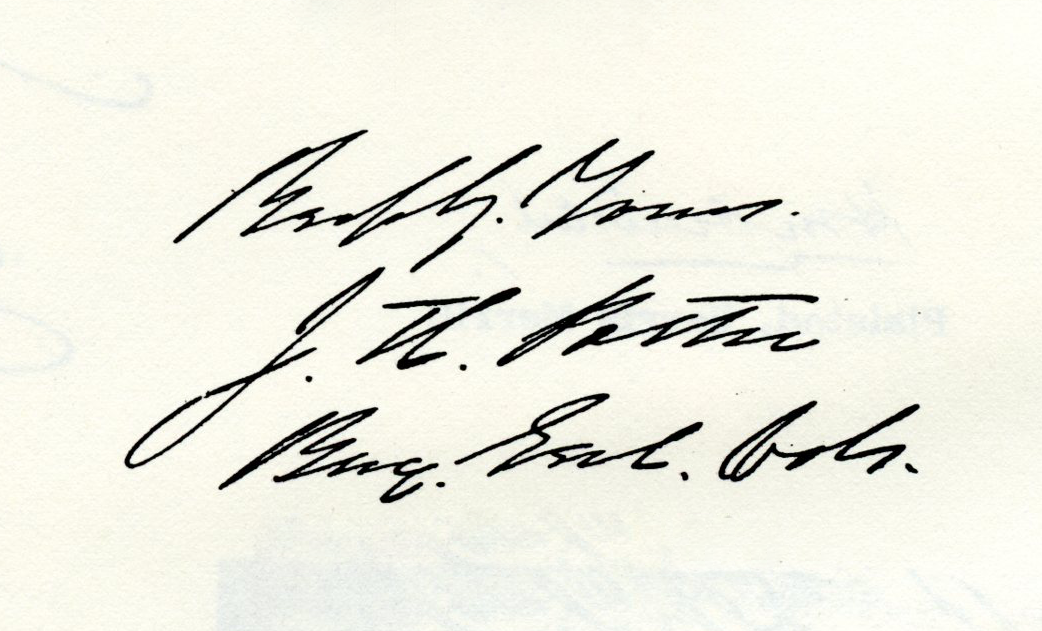 Respfy. Yours.
J. H. Porter
Brig. Genl. Vols.